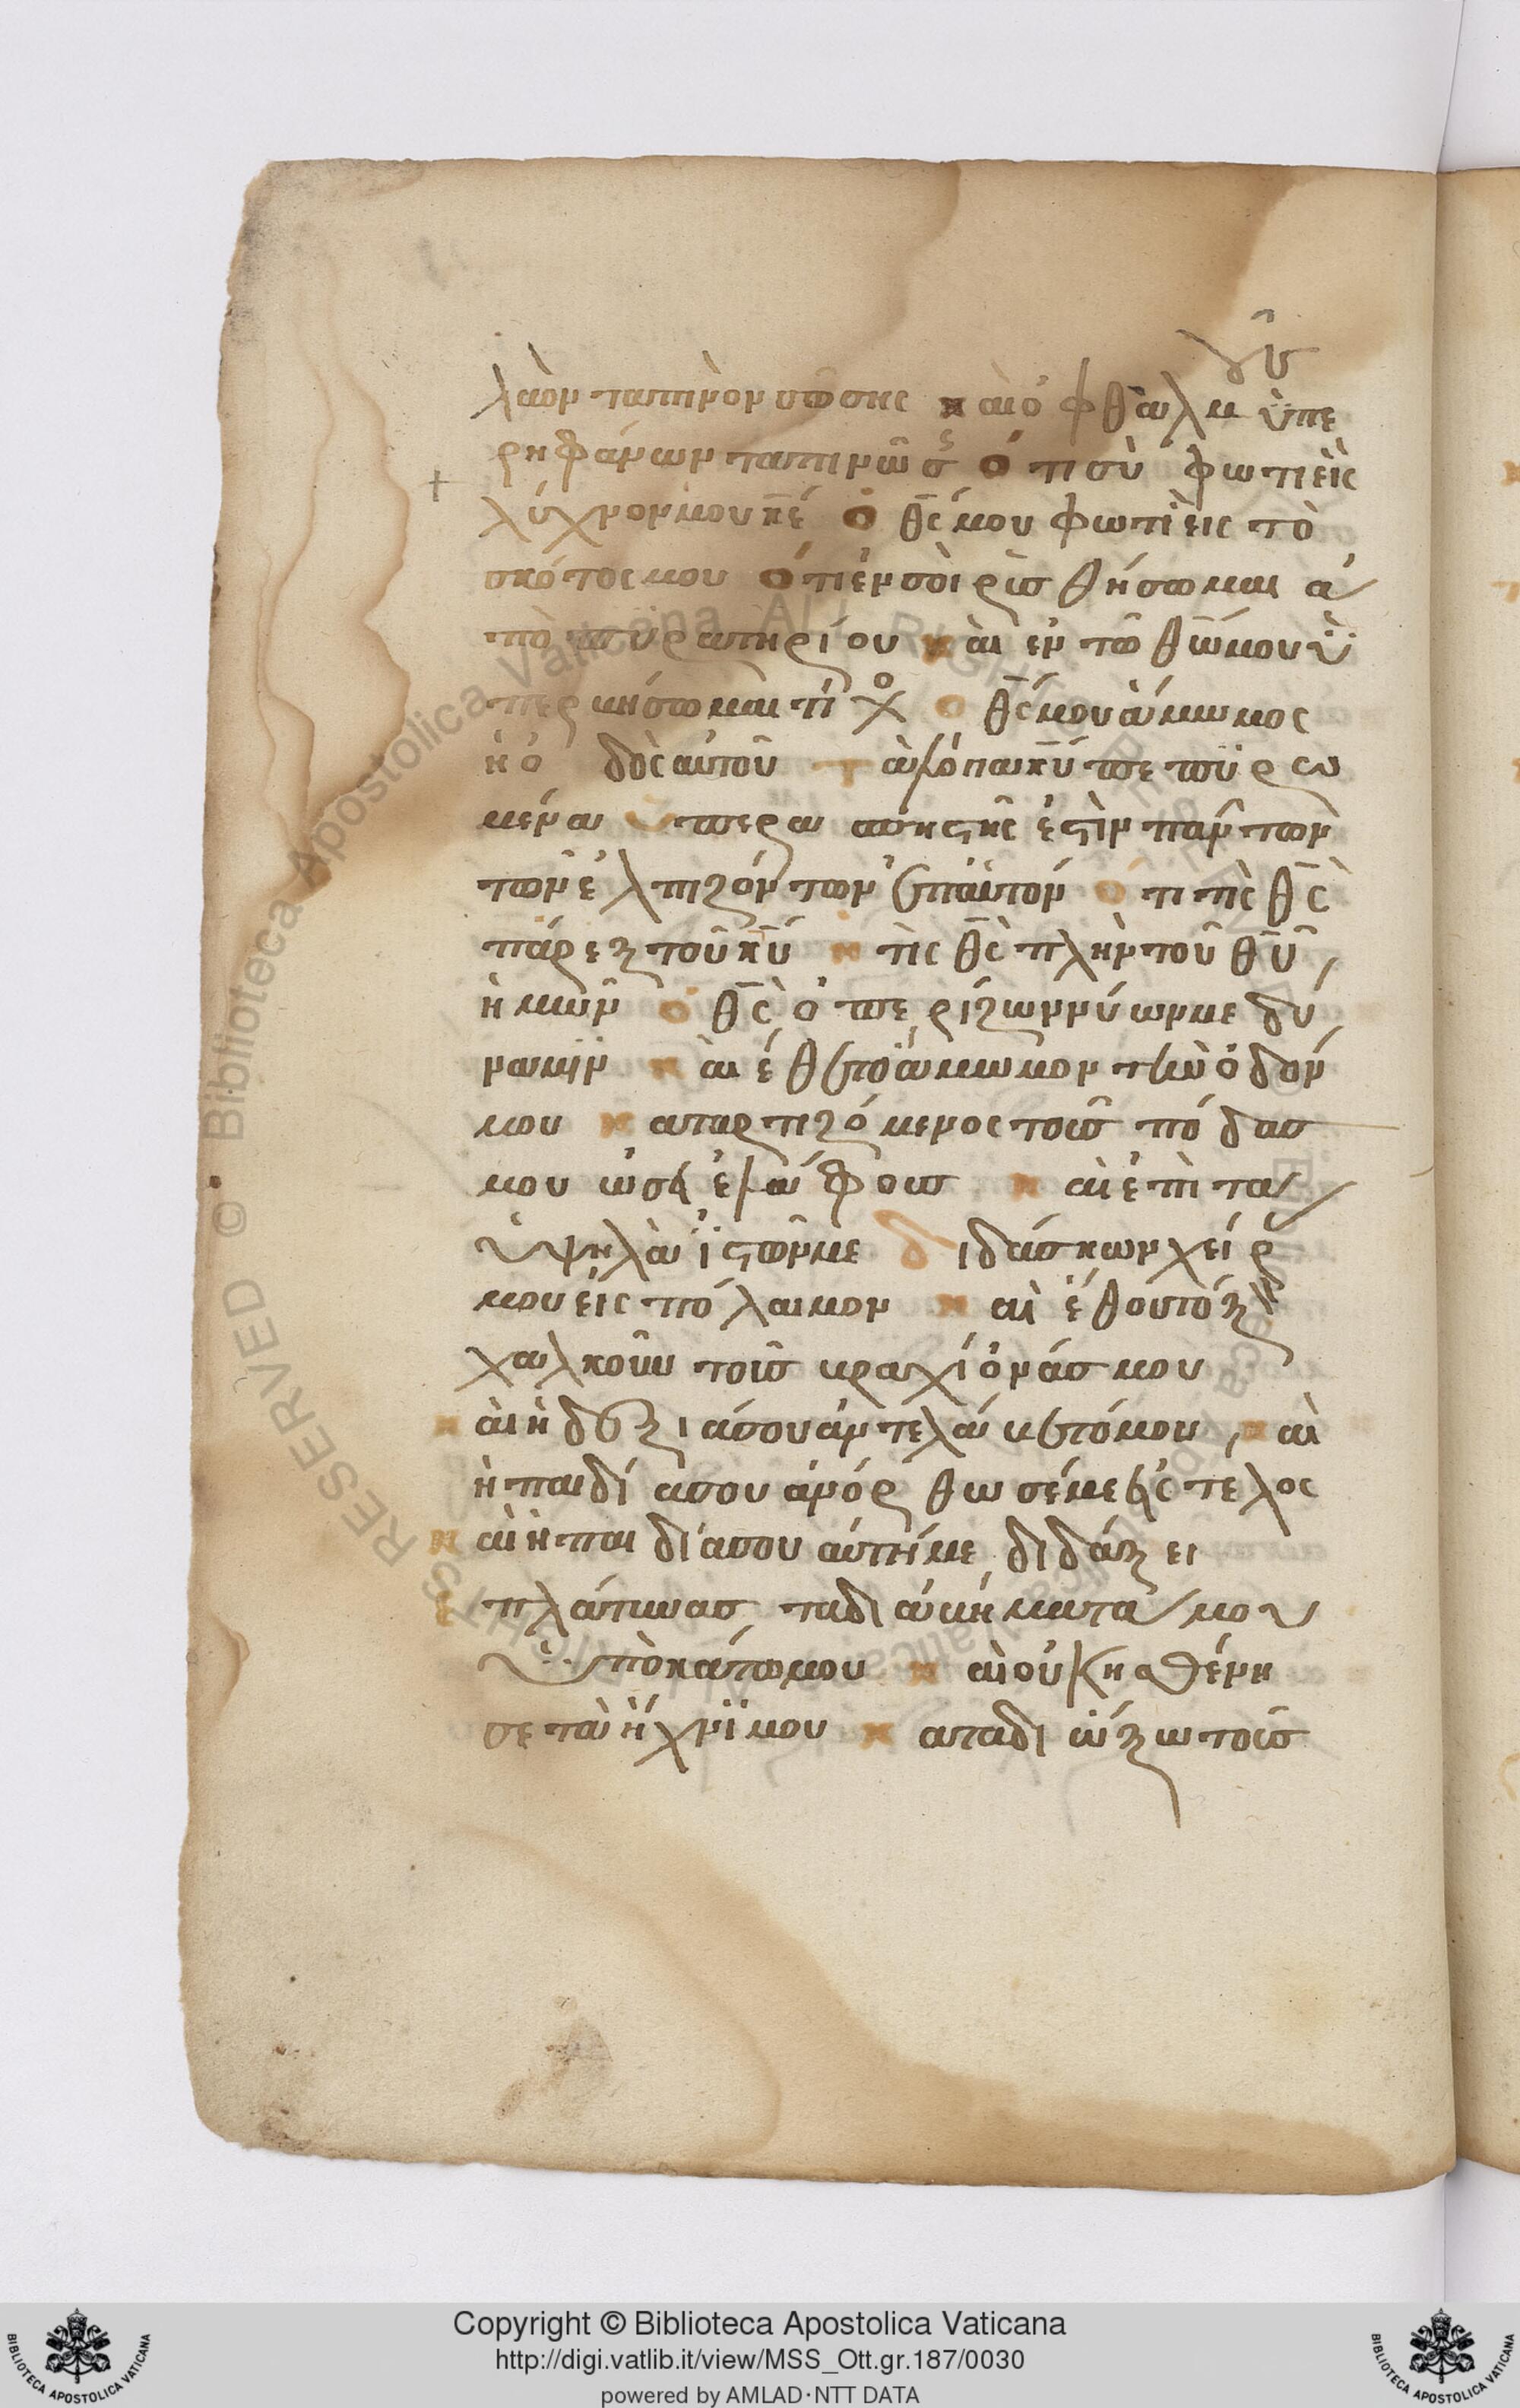 λαὸν ταπηνον σώσης και ὀφθαλμ ὑπε
ρηφάνων ταπινώς ὅτι σὺ φωτιεῖς
λύχνον μου κέ ὁ θς μου φωτιεις τὸ
σκότος μου ὅτι ἐν σοὶ ρισθήσωμαι ἀ
πὸ πυρατηρίου και εν τῶ θῶ μου ὑ
περ
ὁ θς μου ἄμωμος
ἡ ὁδὸς αὐτοῦ τὰ λόγια κύ πεπυρω
μένα ὑπερασπηςτης ἐςὶν πάντων
τῶν ἐλπιζόντων ἐπ αὐτόν ὅτι τὶς θς
πάρεξ τοῦ κύ κ τὶς θς πλὴν τοῦ θῦ
ἡμῶν ὁ θς ὁ περιζωννύων με δύ
ναμιν και ἔθετο ἄμωμον την ὁδόν
μου καταρτιζόμενος τους πόδας
μου ὡσεὶ ἐλάφου και ἐπὶ τα
ὑψηλὰ ἱςῶν με διδάσκων χείρ
μου εἰς πόλαιμον και ἔθου τόξ
χαλκοῦν τους βραχίονάς μου
και ἡ δεξιά σου ἀντελάβετό μου, και
ἡ παιδία σου ἀνόρθωσέ με εἰς τέλος
και ἡ παιδία σου αὐτή με διδάξει
ἐπλάτυνας τα διαβήματα μου
ὑποκάτω μου και οὐκ ησθένη
σε τὰ ἤχνι μου καταδιώξω τους
Copyright © Biblioteca Apostolica Vaticana
http://digi.vatlib.it/view/MSS_Ott.gr.187/0030
powered by AMLAD·NTT DATA